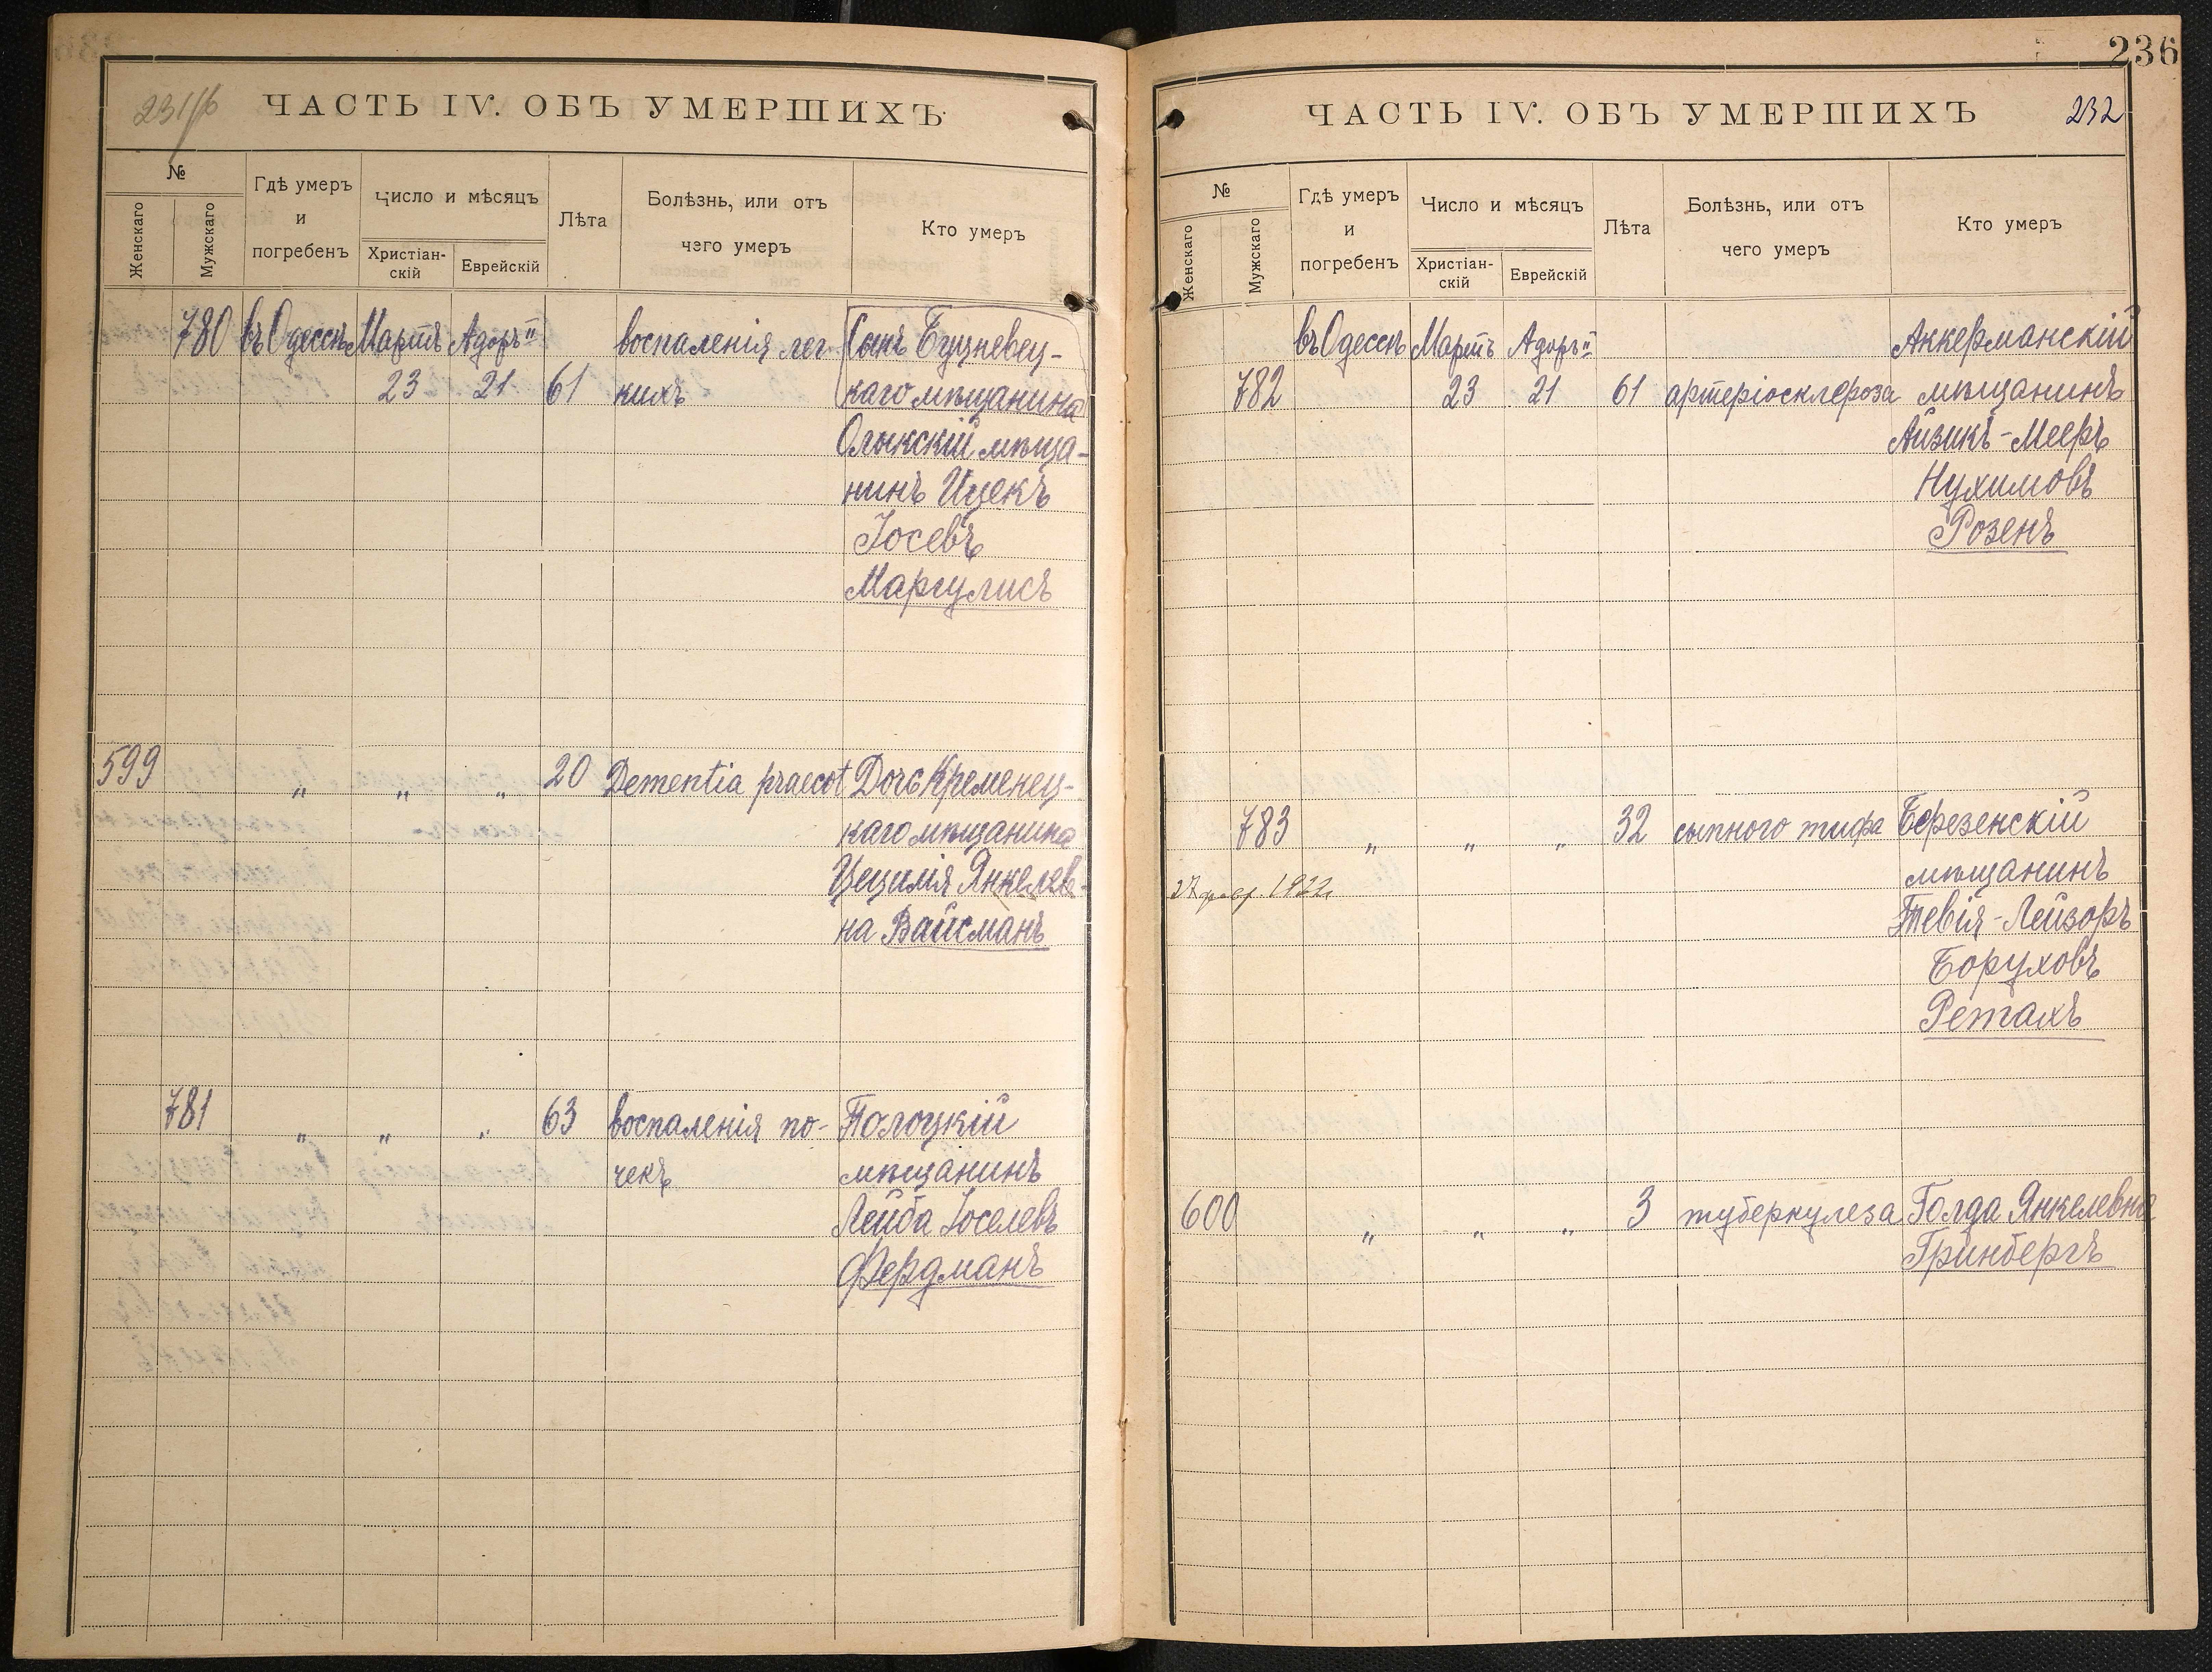 231/б
ЧАСТЬ IV. ОБЪ УМЕРШИХЪ
№
Женскаго
Мужскаго
Гдѣ умеръ
и
погребенъ
Число и мѣсяцъ
Христіан-
скій
Еврейскій
Лѣта
Болѣзнь, или отъ
чего умеръ
Кто умеръ
780 въ Одессѣ Мартъ Адоръ II воспаленія лег Сынъ Буцневец-
23 21 61 кихъ каго мѣщанина
Олыкскій мѣща-
нинъ Ицекъ
Іосевъ
Маргулисъ
599 " " " 20 Dementia praecot Дочь Кременец-
каго мѣщанина
Цецилія Янкелев-
на Вайсманъ
781 " " " 63 воспаленія по- Полоцкій
чекъ мѣщанинъ
Лейба Іоселевъ
Фердманъ
236
ЧАСТЬ IV. ОБЪ УМЕРШИХЪ 232
№
Женскаго
Мужскаго
Гдѣ умеръ
и
погребенъ
Число и мѣсяцъ
Христіан-
скій
Еврейскій
Лѣта
Болѣзнь, или отъ
чего умеръ
Кто умеръ
въ Одессѣ Мартъ Адоръ II Аккерманскій
782 23 21 61 артеріосклероза мѣщанинъ
Айзикъ-Мееръ
Нухимовъ
Розенъ
783 " " " 32 сыпного тифа Березенскій
мѣщанинъ
27 февр. 1922
Тевія-Лейзоръ
Боруховъ
Ретахъ
600 " " " 3 туберкулеза Голда Янкелевна
Гринбергъ